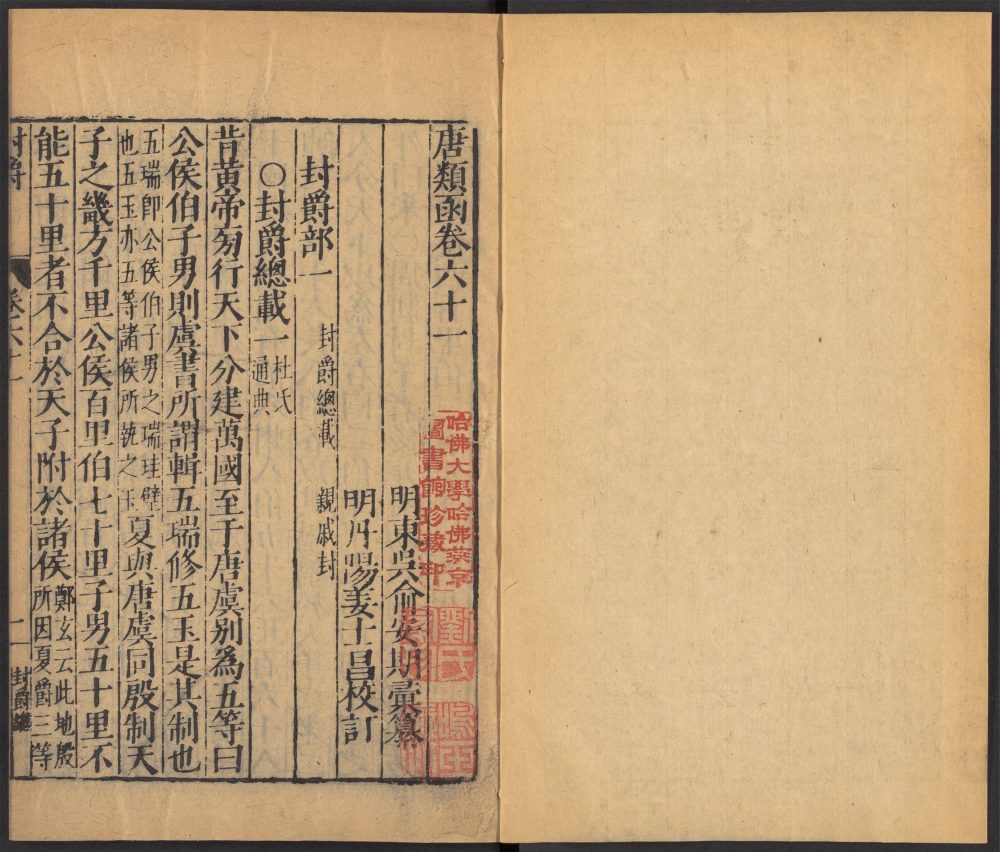 唐類函卷六十一
明東吳俞安期彙纂
明丹陽姜士昌校訂
封爵部一 封爵總載 親戚封
○封爵總載一 杜氏通典
昔黃帝旁行天下分建萬國至于唐虞別為五等曰
公侯伯子男則虞書所謂輯五瑞修五玉是其制也
五瑞卽公侯伯子男之瑞珪璧也五玉亦五等諸侯所執之玉 夏與唐虞同殷制天
子之畿方千里公侯百里伯七十里子男五十里不
能五十里者不合於天子附於諸侯 鄭玄云此地殷所因夏爵三等
封爵 卷六十一 一 封爵總
哈佛大學哈佛燕京
圖書館珍藏印